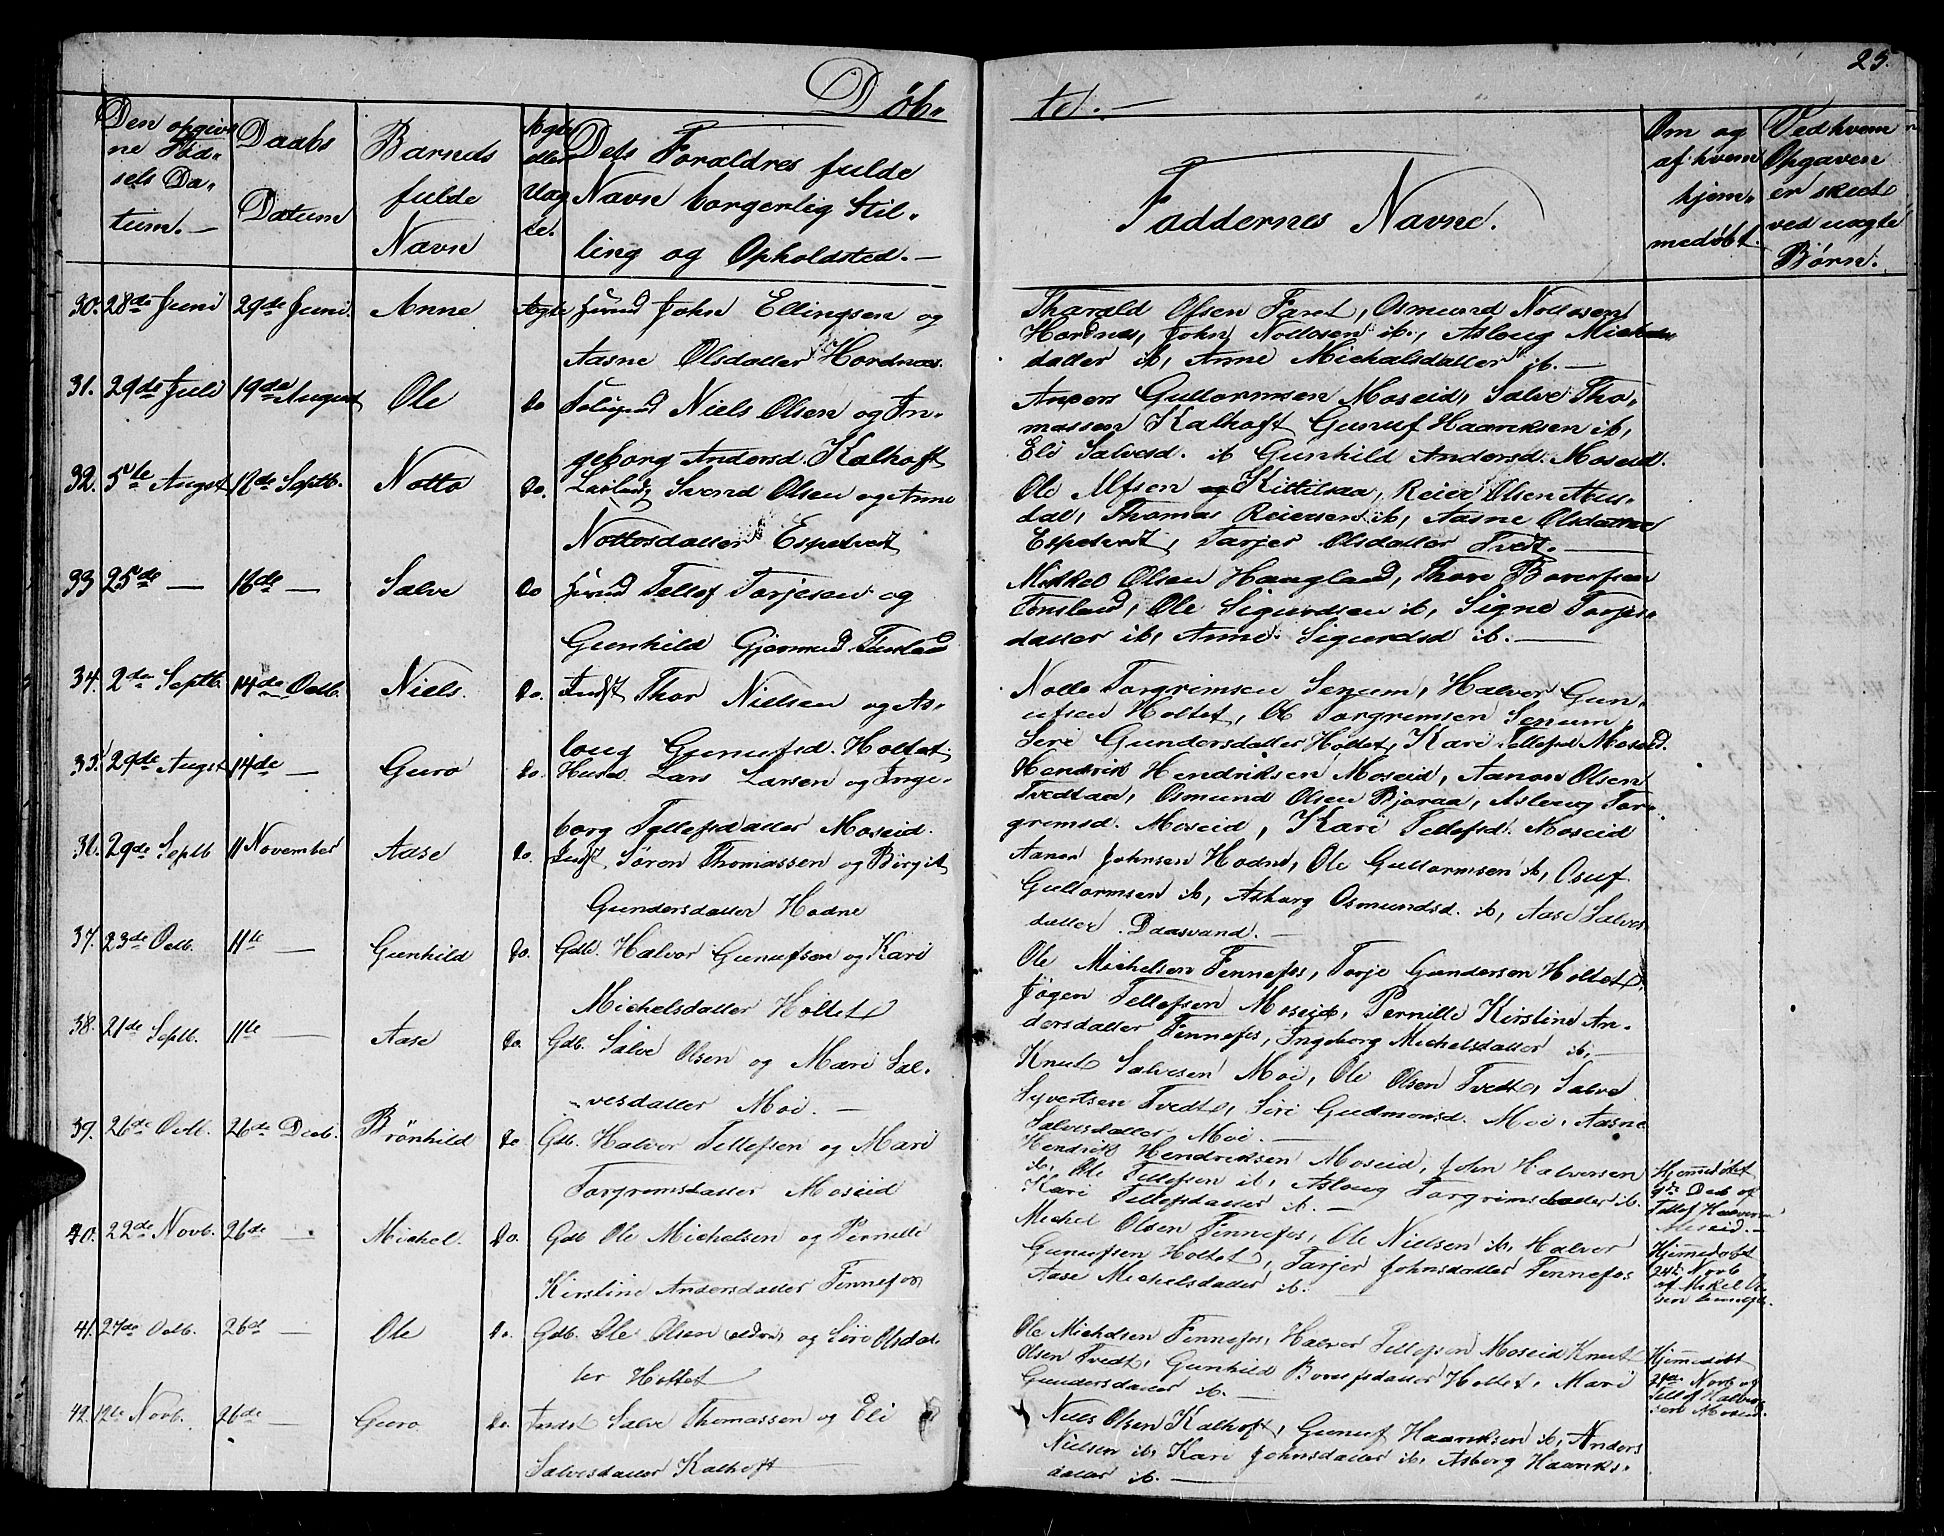 25.
Døb-
te.-
Den opgiv-
ne Fød-
sels Da-
tum.-
Daabs
Datum
Barnets
fulde
Navn
Ægte
eller
Uæg
te.
Dets Forældres fulde
Navn borgerlig Stil-
ling og Opholdsted.-
Faddernes Navne.
Om og
af hvem
hjem-
medøbt.
Ved hvem
Opgaven
er skeet
ved uægte
Børn.
30. 28de Juni 29de Juni. Anne Ægte John Ellingsen og
Aasne Olsdatter Hordnæs.
Tharald Olsen Faret, Osmund Nottosen
Hordnes, John Nottosen ib., Aslaug Michels
datter ib, Anne Michalsdatter ib.-
31. 29de Juli 19de August Ole do Niels Olsen og In-
geborg Andersd. Kalhoft
Anders Guttormsen Moseid, Salve Tho-
massen Kalhoft Gunuf Haavoksen ib,
Eli Salvesd. ib Gunhild Andersd. Moseid.
32. 5te Augst 12de Septb. Notto do. Svend Olsen og Anne
Nottosdatter Espetvedt
Ole Alfsen Kittilsaa, Reier Olsen
dal, Thomas Reiersen ib, Aasne Olsdatter
Espetvedt, Tarjer Olsdatter Tvedt.-
33 25de - 16de - Salve do Tellef Torjesen og
Gunhild Gjermund
Mikkel Olsen Haugland, Thore
Ole Sigurdsen ib, Signe Torjes-
datter ib, Anne Sigurdsd ib.-
34. 2den Septb. 14de Octb. Niels. do. Indst Thor Nielsen og As-
laug Gunufsd. Holtet
Notto Torgrimsen Senum, Halvor Gun-
ufsen Holtet, Ole Torgrimsen Senum,
Siri Gundersdatter Holtet, Kari Tellefsd Moseid.
35. 29de Augst 14de - Guro do. Lars Larsen og Inge-
borg Tellefsdatter Moseid.
Hendrik Hendriksen Moseid, Aanon Olsen
Tvedtaa, Osmund Olsen Bjoraa, Aslaug Tor-
grimsd. Moseid, Kari Tellefsd. Moseid
36. 29de Septb 11 November Aase do. Indst Søren Thomassen og Birgit
Gundersdatter Hodne
Aanon Johnsen Hodne, Ole Guttormsen ib, Osuf
Guttormsen ib, Asborg Osmundsd. ib, Aase Salves-
datter Daasvand.-
37. 23de Octb. 11te - Gunhild do. Gdb. Halvor Gunufsen og Kari
Michelsdatter Holtet
Ole Michelsen Fennefos, Torje Gundersen Holtet,
Jøgen Tellefsen Moseid, Pernille Kirstine An-
dersdatter Fennefos, Ingeborg Michelsdatter ib.-
38. 21de Septb. 11te - Aase do. Gdb. Salve Olsen og Mari Sal-
vesdatter Moi.-
Knut Salvesen Moi, Ole Olsen Tvedt, Salve
Syvertsen Tvedt, Siri Gudmonsd. Moi, Aasne
Salvesdatter Moi.-
39. 26de Octb. 26de Decb. Brønhild do Gdb. Halvor Tellefsen og Mari
Torgrimsdatter Moseid
Hendrik Hendriksen Moseid, John Halvorsen
ib, Ole Tellefsen ib, Aslaug Torgrimsdatter ib.
Kari Tellefsdatter ib.-
Hjemmedøbt
9de Decb af
Tellef Halvorsen
Moseid.-
40. 22de Novb. 26de - Michel. do. Gdb Ole Michelsen og Pernille
Kirstine Andersdatter Fennefos
Michel Olsen Fennefos, Ole Nielsen ib, Halvor
Gunufsen Holtet, Tarjer Johnsdatter Fennefos
Aase Michelsdatter ib.-
Hjemmedøbt
24de Novb
af Mikel Ol-
sen Fennefos.
41. 27de Octb. 26de - Ole do. Gdb. Ole Olsen (eldre) og Siri Olsdat-
ter Holtet
Ole Michelsen Fennefos, Halvor Tellefsen Moseid Knut
Olsen Tvedt, Gunhild Bovufsdatter Holtet, Mari
Gundersdatter ib.-
Hjemmedøbt
Novb af
Tellef Halvor-
sen Moseid.
42. 12te Novb. 26de - Guro do. Indst Salve Thomassen og Eli
Salvesdatter Kalhoft
Niels Olsen Kalhoft, Gunuf Haavoksen ib, Anders
Nielsen ib, Kari Johnsdatter ib, Asborg Haavoks-
datter ib.-